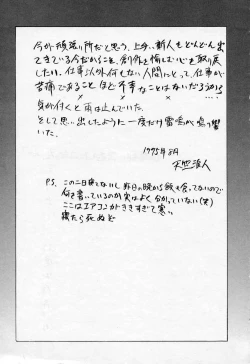 今が頑張り所だと思う。上手い新人もどんどん出
てきている今だからこそ、創作を愉しむ心を取り戻
したい。仕事以外何もない人間にとって、仕事が
苦痛であることほど不幸なことはないだろうから
× × ×
気が付くと雨は止んでいた。
そして思い出したように一度だけ雷鳴が鳴り響
いた。
1995年8月
P.S. この二日寝てないし、昨日の晩から飯も食ってないので
何を書いているのか実はよく分かっていない(笑)
ここはエアコンがききすぎて寒い
寝たら死ぬぞ